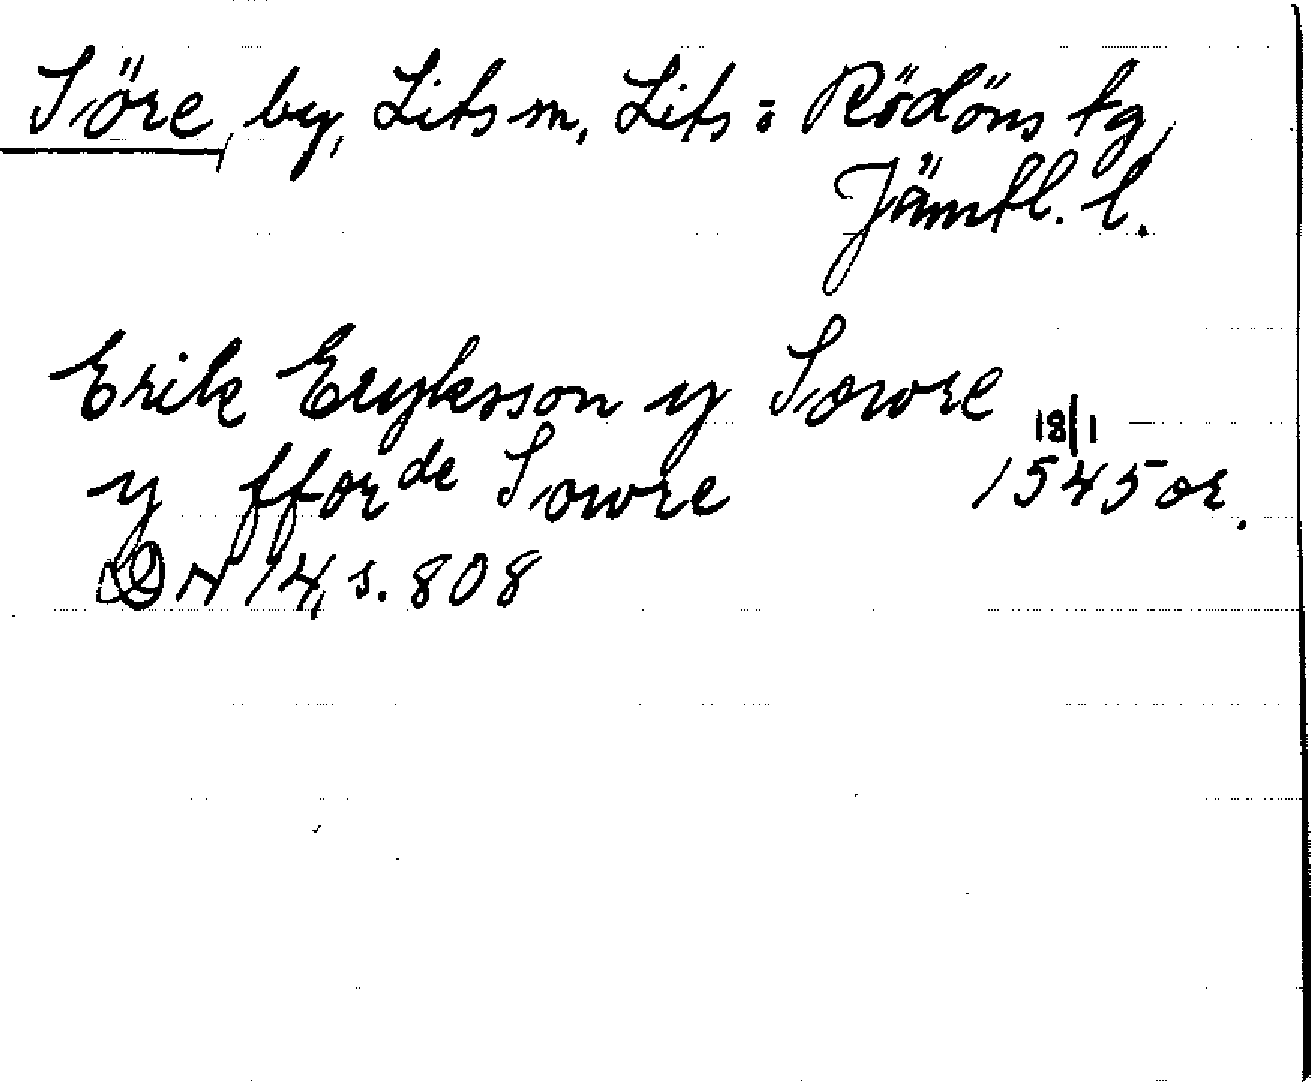 Söre, by, Lits sn, Lits o Rödöns tg,
Jämtl. l.
Erik Eryksson y Sowre
18/1
y fforde Sowre 1545 or.
DN 14, s. 808